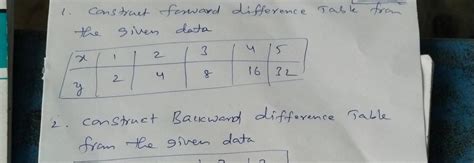 1. construct forward difference Table from
the given data
x 1 2 3 4 5
y 2 4 8 16 32
2. construct Backward difference Table
from the given data